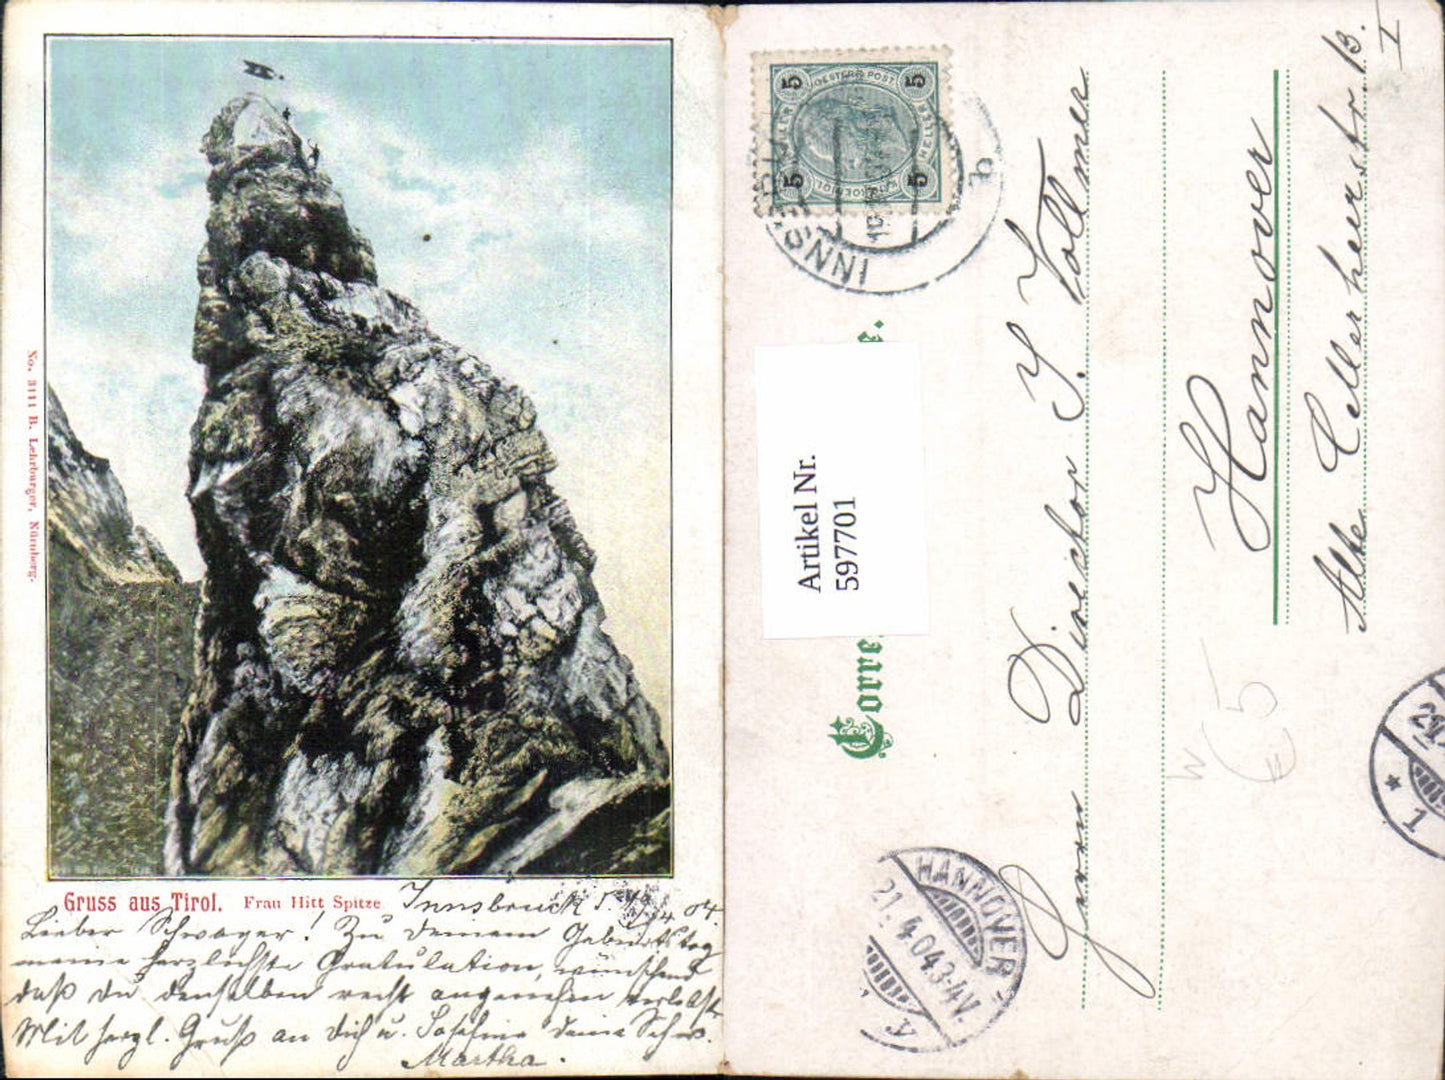 No. 3111 B. Lehrburger, Nürnberg.
Gruss aus Tirol. Frau Hitt Spitze
Innsbruck 04
Lieber Schwager! Zu Deinem Geburtstag
meine herzlichste Gratulation, wünschend
daß Du denselben recht angenehm verlebst
Mit herzl. Gruß an Dich u. Josefine Deine Schw.
Martha.
OESTERR. POST
5 5
5 5
INNSBRUCK
b
Corre
Artikel Nr.
597701
Herrn Director J. Vollmer
Hannover
Alte Cellerheerstr. 13.
I
W
€5
HANNOVER
21.4.04.3-4V.
1